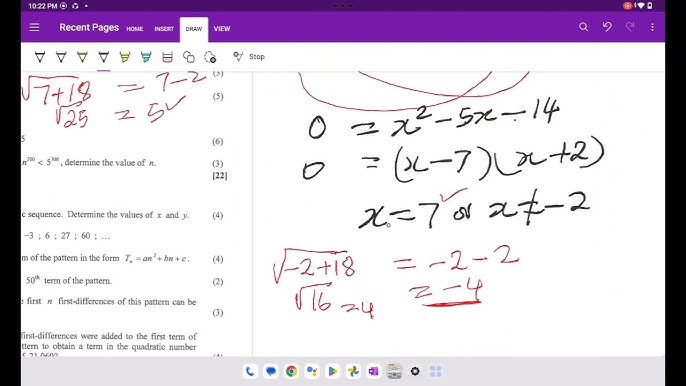 10:22 PM
Recent Pages HOME INSERT DRAW VIEW
Stop
√7+18 = 7-2
(3)
√25 = 5 ✓
(5)
5
(6)
n²⁰⁰ < 5³⁰⁰, determine the value of n.
(3)
[22]
c sequence. Determine the values of x and y.
(4)
-3 ; 6 ; 27 ; 60 ; …
m of the pattern in the form Tₙ = an² + bn + c.
(4)
50th term of the pattern.
(2)
e first n first-differences of this pattern can be
(3)
first-differences were added to the first term of
ttern to obtain a term in the quadratic number
(4)
0 = x² - 5x - 14
0 = (x-7)(x+2)
x = 7 ✓ or x ≠ -2
√-2+18 = -2-2
√16 = 4 = -4